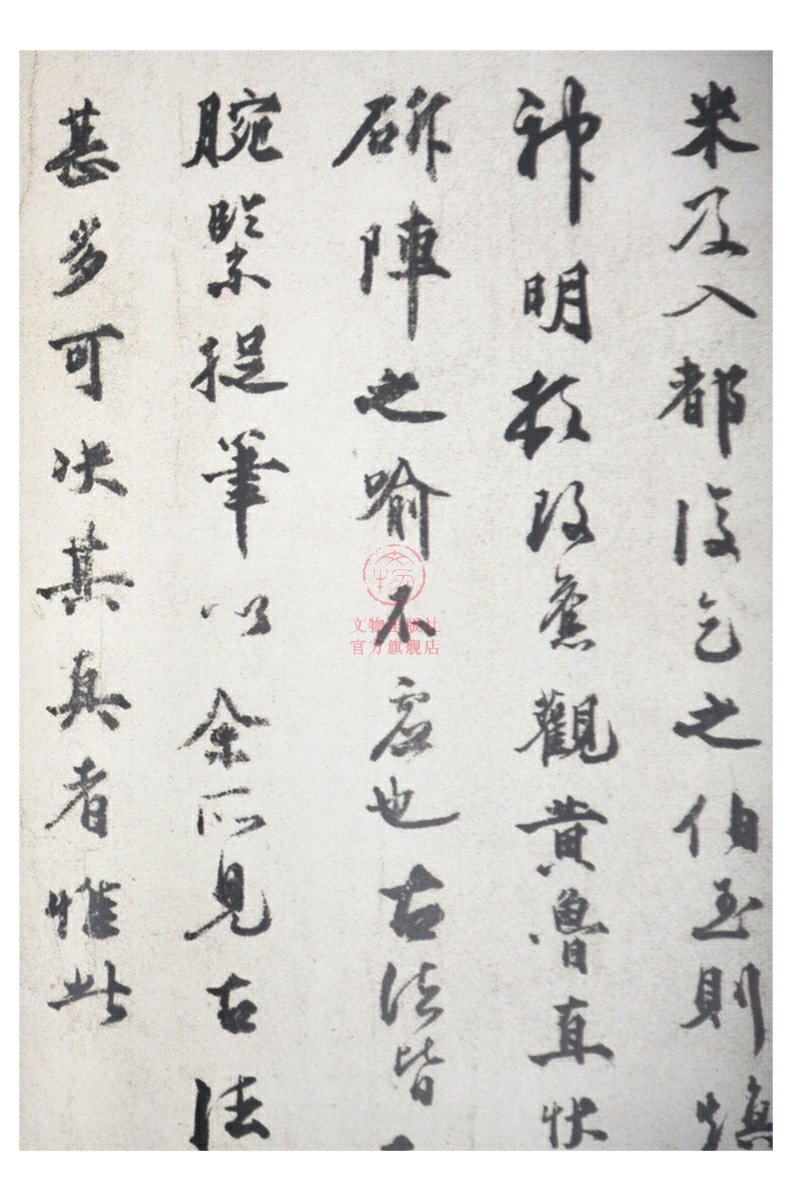 米及入都復乞之伯玉則煥
神明頓改舊觀黃魯直快
斫陣之喻不虛也古法皆
腕緊捉筆以余所見古法
甚多可決其真者惟此
文物出版社
官方旗舰店